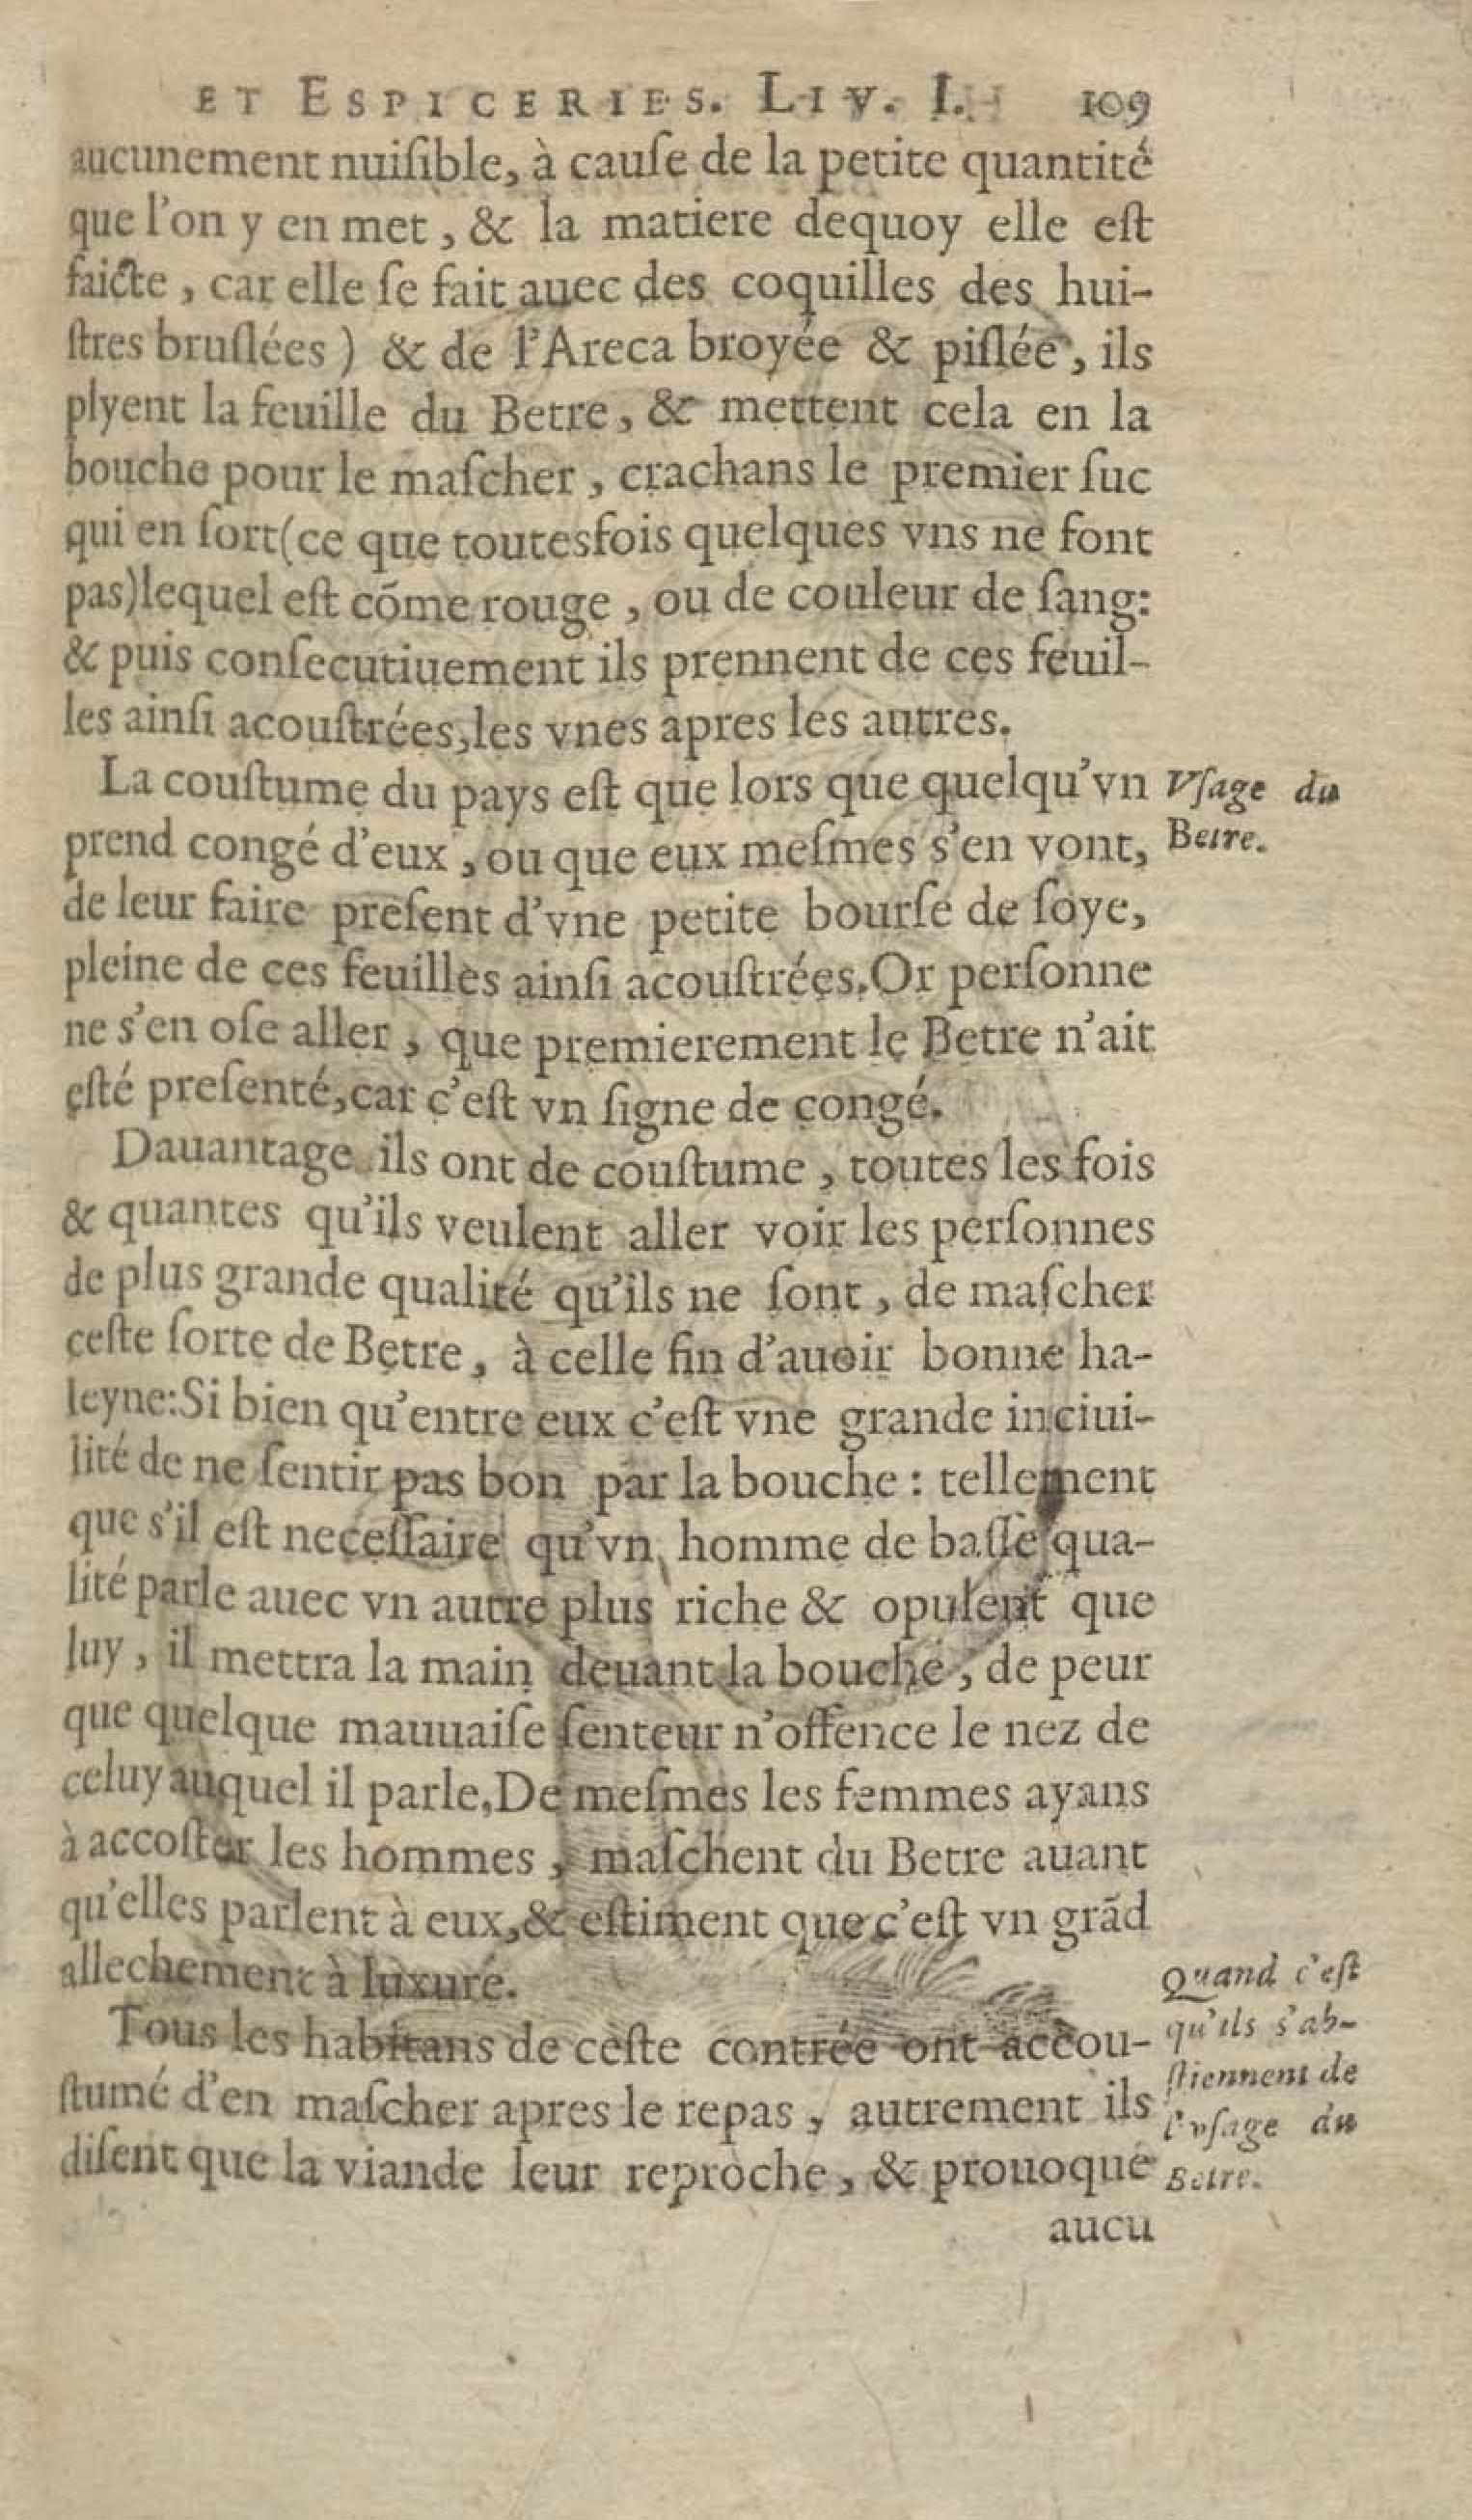 ET ESPICERIES. LIV. I. 109
aucunement nuiſible, à cauſe de la petite quantité
que l'on y en met, & la matiere dequoy elle eſt
faicte, car elle ſe fait auec des coquilles des hui-
ſtres bruſlées) & de l'Areca broyée & piſlée, ils
plyent la feuille du Betre, & mettent cela en la
bouche pour le maſcher, crachans le premier ſuc
qui en ſort(ce que toutesfois quelques vns ne font
pas)lequel eſt cõme rouge, ou de couleur de ſang:
& puis conſecutiuement ils prennent de ces feuil-
les ainſi acouſtrées,les vnes apres les autres.
La couſtume du pays eſt que lors que quelqu'vn
Vſage du
prend congé d'eux, ou que eux meſmes s'en vont,
Betre.
de leur faire preſent d'vne petite bourſe de ſoye,
pleine de ces feuilles ainſi acouſtrées.Or perſonne
ne s'en oſe aller, que premierement le Betre n'ait
eſté preſenté,car c'eſt vn ſigne de congé.
Dauantage ils ont de couſtume, toutes les fois
& quantes qu'ils veulent aller voir les perſonnes
de plus grande qualité qu'ils ne ſont, de maſcher
ceſte ſorte de Betre, à celle fin d'auoir bonne ha-
leyne:Si bien qu'entre eux c'eſt vne grande inciui-
lité de ne ſentir pas bon par la bouche : tellement
que s'il eſt neceſſaire qu'vn homme de baſſe qua-
lité parle auec vn autre plus riche & opulent que
luy, il mettra la main deuant la bouche, de peur
que quelque mauuaiſe ſenteur n'offence le nez de
celuy auquel il parle,De meſmes les femmes ayans
à accoſter les hommes, maſchent du Betre auant
qu'elles parlent à eux,& eſtiment que c'eſt vn grãd
allechement à luxure.
Quand c'eſt
Tous les habitans de ceſte contrée ont accou-
qu'ils s'ab-
ſtumé d'en maſcher apres le repas, autrement ils
ſtiennent de
l'vſage du
diſent que la viande leur reproche, & prouoque
Betre.
aucu